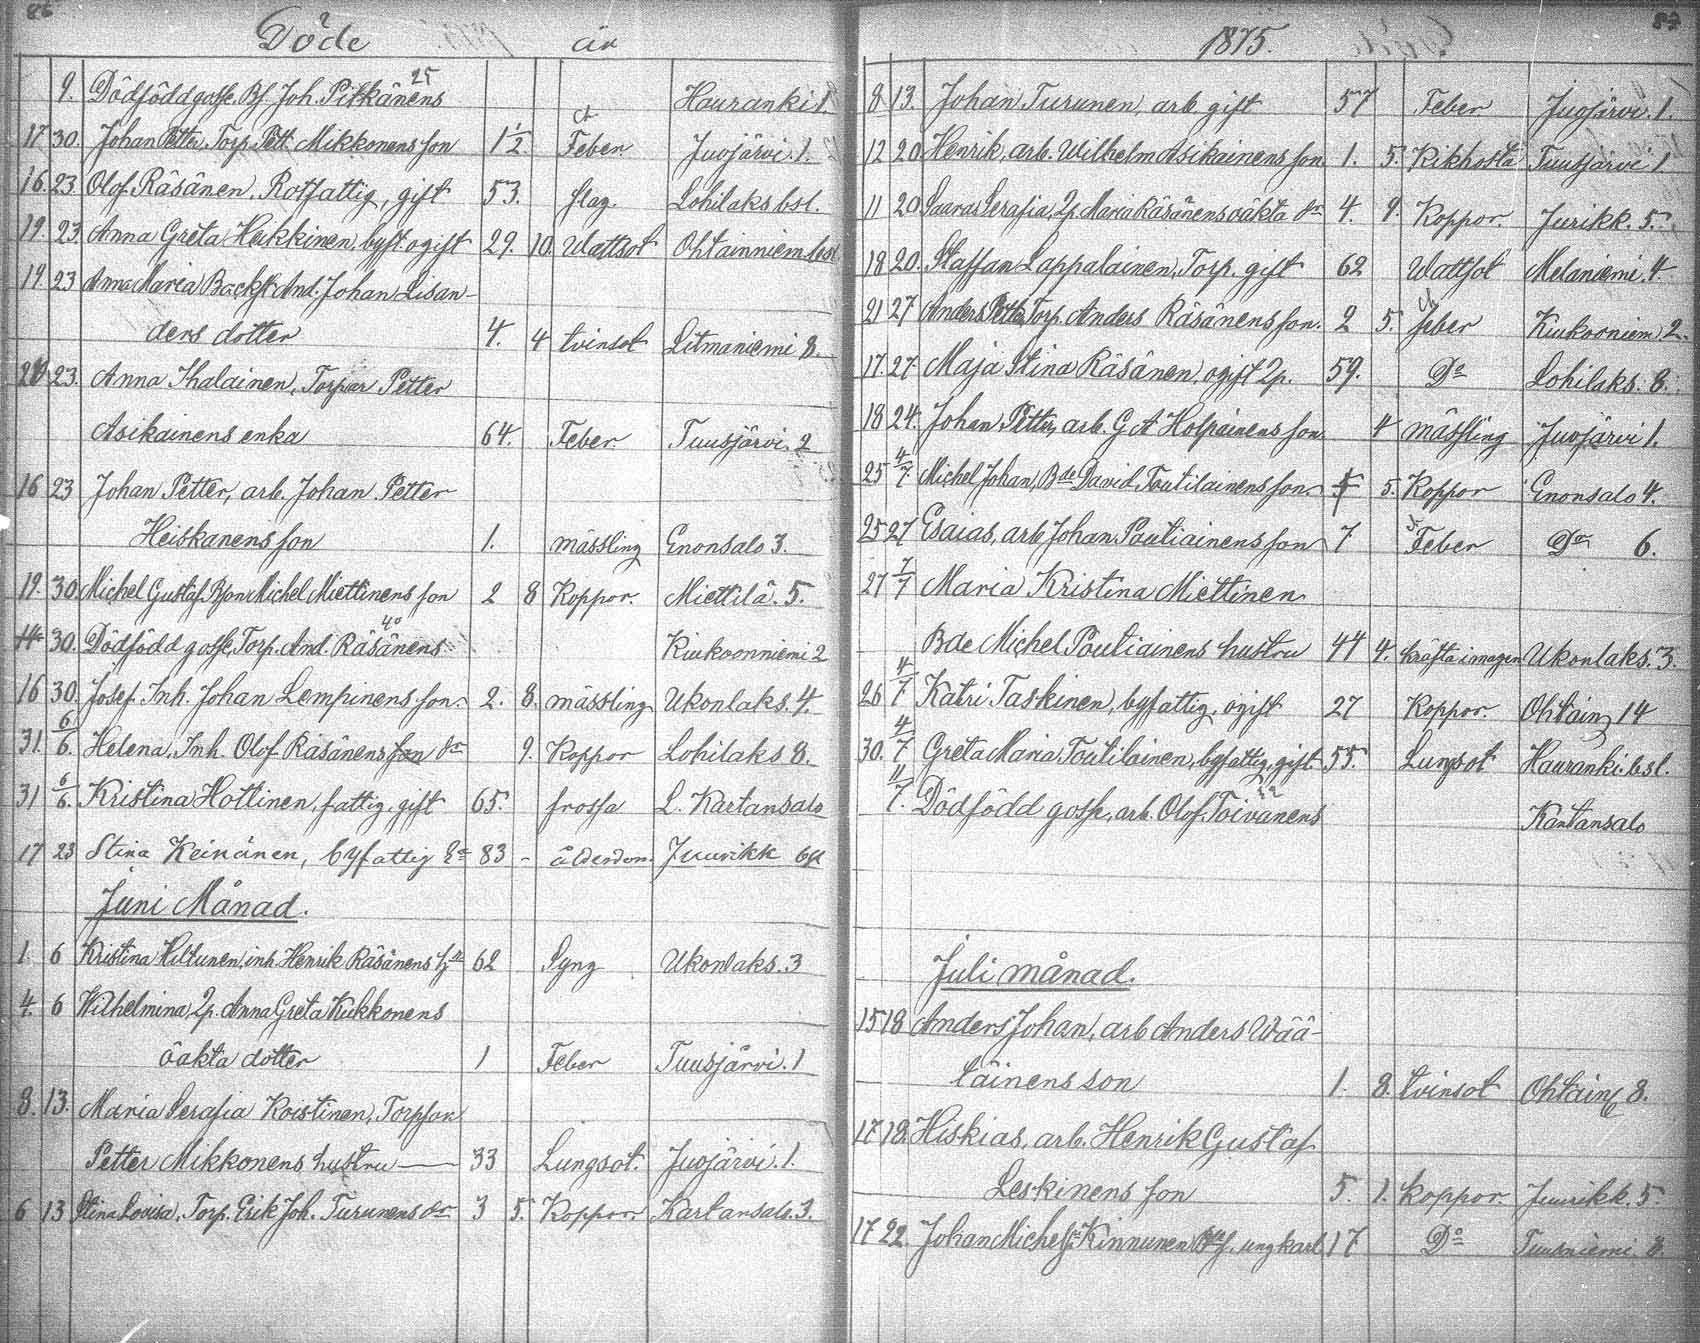 86
Döde år
9. Dödfödd gosse, Bf. Joh. Pitkänens 25 Hauranki 1.
17 30. Johan Petter, Torp. Pett. Mikkonens son 1 1/2 Feber. Juojärvi. 1.
16. 23. Olof Räsänen, Rotfattig, gift 53. slag. Lohilaks bsl.
19. 23. Anna Greta Heikkinen, byft. ogift 29. 10. Wattsot Ohtainniem bsl
19 23 Anna Maria Backst. And. Johan Lisan-
ders dotter 4. 4 tvinsot Litmaniemi 8.
23. Anna Ihalainen, Torpar Petter
Asikainens enka 64. Feber Tuusjärvi. 2
16 23 Johan Petter, arb. Johan Petter
Heiskanens son 1. mässling Enonsalo 3.
19. 30. Michel Gustaf, Bson Michel Miettinens son 2 8 Koppor. Miettilä. 5.
14 30. Dödfödd gosse, Torp. And. Räsänens 40 Kiukoonniemi 2
16 30. Josef, Inh. Johan Lempinens son. 2. 8. mässling Ukonlaks. 4.
31. 6/6. Helena, Inh. Olof Räsänens son dr 9. Koppor Lohilaks 8.
31 6/6. Kristina Hottinen, fattig, gift 65. frossa L. Kartansalo
17 23 Stina Keinänen, byfattig Ea 83 - ålderdom. Juurikk 6
Juni Månad.
1. 6 Kristina Hiltunen, inh. Henrik Räsänens h 62 Styng Ukonlaks. 3
4. 6 Wilhelmina, 2p. Anna Greta Kukkonens
oäkta dotter 1 Feber Tuusjärvi. 1
8. 13. Maria Serafia Koistinen, Torpson
Petter Mikkonens hustru — 33 Lungsot. Juojärvi. 1.
6 13 Stina Lovisa, Torp. Erik Joh. Turunens dr 3 5. Koppor. Kartansalo. 3.
87
1875.
8 13. Johan Turunen, arb. gift 57 Feber Juojärvi. 1.
12 20. Henrik, arb. Wilhelm Asikainens son 1. 5. Kikhosta Tuusjärvi 1.
11 20. Saara Serafia, 2p. Maria Räsänens oäkta dr 4. 9. Koppor. Jurikk. 5.
18 20. Staffan Lappalainen, Torp. gift 62 Wattsot Melaniemi. 4.
21 27 Anders Petter, Torp. Anders Räsänens son. 2 5. feber Kiukooniem. 2.
17 27. Maja Stina Räsänen, ogift 2p. 59. Do Lohilaks. 8.
18 24. Johan Petter, arb. G A Holpainens son 4 mässling Juojärvi 1.
25 4/7 Michel Johan, Bde David Toutilainens son. 5. Koppor Enonsalo 4.
25 27 Esaias, arb Johan Poutiainens son 7 Feber Do 6.
27 7/7 Maria Kristina Miettinen
Bde Michel Poutiainens hustru 44 4. kräfta i magen Ukonlaks. 3.
26 4/7 Katri Taskinen, byfattig, ogift 27 Koppor. Ohtain 14
30. 4/7. Greta Maria Toutilainen, byfattig, gift 55 Lungsot Hauranki bsl.
11/7. Dödfödd gosse, arb. Olof Toivanens Kartansalo
Juli månad.
15 18 Anders Johan, arb Anders Wää-
täinens son 1. 8. tvinsot Ohtain 8.
17 18. Hiskias, arb. Henrik Gustaf
Leskinens son 5. 1. koppor. Juurikk. 5
17 22. Johan Michels Kinnunen ungkarl 17 Do Tuusniemi 8